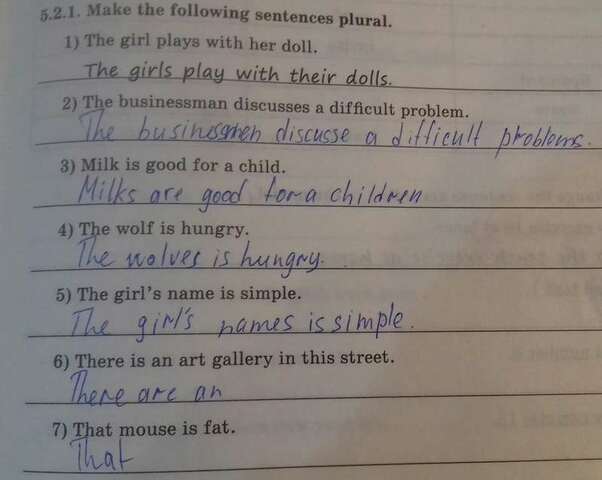 5.2.1. Make the following sentences plural.
1) The girl plays with her doll.
The girls play with their dolls.
2) The businessman discusses a difficult problem.
The businessmen discusse a difficult problems.
3) Milk is good for a child.
Milks are good for a children
4) The wolf is hungry.
The wolves is hungry.
5) The girl's name is simple.
The girl's names is simple.
6) There is an art gallery in this street.
There are an
7) That mouse is fat.
That